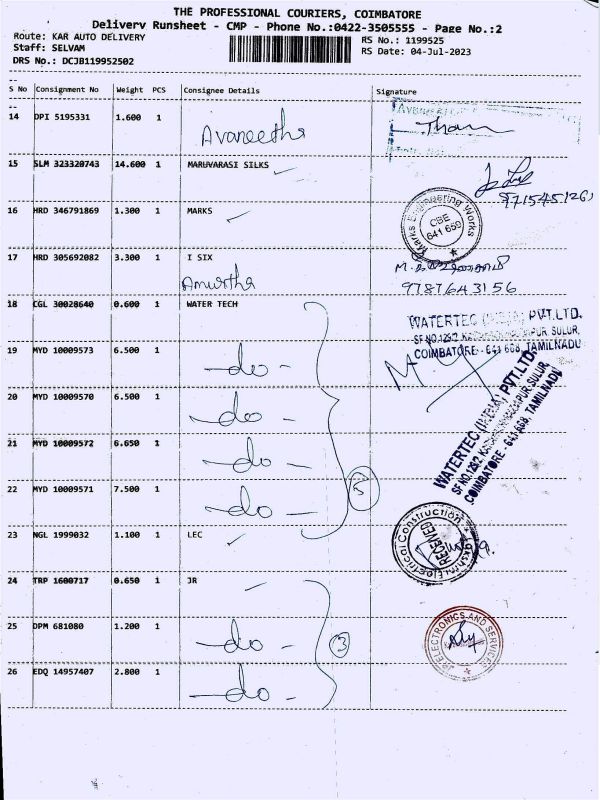 THE PROFESSIONAL COURIERS, COIMBATORE
Delivery Runsheet - CMP - Phone No.:0422-3505555 - Page No.:2
Route: KAR AUTO DELIVERY
Staff: SELVAM
DRS No.: DCJB119952502
RS No.: 1199525
RS Date: 04-Jul-2023
S No Consignment No Weight PCS Consignee Details Signature
14 DPI 5195331 1.600 1 Avaneetha
15 SLM 323320743 14.600 1 MARUVARASI SILKS
16 HRD 346791869 1.300 1 MARKS
Marks Engineering Works
CBE
641 659
17 HRD 305692082 3.300 1 I SIX
Amurtha
9787643156
18 CGL 30028640 0.600 1 WATER TECH
WATERTEC (INDIA) PVT.LTD.
COIMBATORE - 641 668, TAMILNADU
19 MYD 10009573 6.500 1 -do-
20 MYD 10009570 6.500 1 -do-
21 MYD 10009572 6.650 1 -do-
22 MYD 10009571 7.500 1 -do-
5
WATERTEC (INDIA) PVT.LTD.
COIMBATORE - 641 668, TAMILNADU
23 NGL 1999032 1.100 1 LEC
Lakshmi Electrical Construction
RECEIVED
24 TRP 1600717 0.650 1 JR
25 DPM 681080 1.200 1 -do-
26 EDQ 14957407 2.800 1 -do-
3
JR ELECTRONICS AND SERVICES